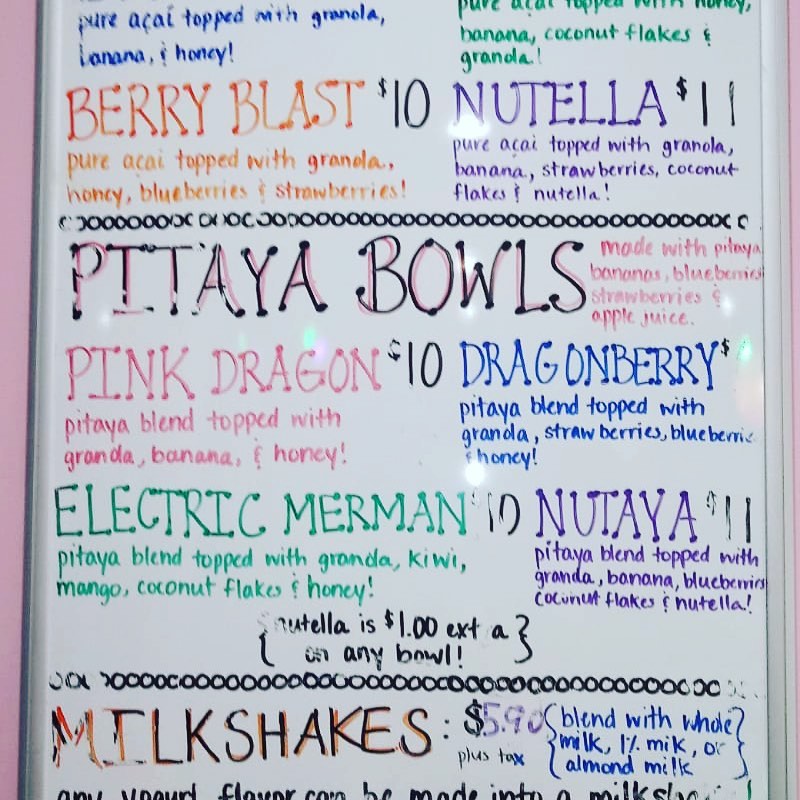 pure açai topped with granola,
banana, & honey!
pure açai topped with honey,
banana, coconut flakes &
granola!
BERRY BLAST $10
pure açai topped with granola,
honey, blueberries & strawberries!
NUTELLA $11
pure açai topped with granola,
banana, strawberries, coconut
flakes & nutella!
PITAYA BOWLS
made with pitaya
bananas, blueberries
strawberries &
apple juice.
PINK DRAGON $10
pitaya blend topped with
granola, banana, & honey!
DRAGONBERRY $
pitaya blend topped with
granola, strawberries, blueberrie
& honey!
ELECTRIC MERMAN $10
pitaya blend topped with granola, kiwi,
mango, coconut flakes & honey!
NUTAYA $11
pitaya blend topped with
granola, banana, blueberries
coconut flakes & nutella!
{nutella is $1.00 ext a
on any bowl!}
MILKSHAKES: $5.90
plus tax
{blend with whole
milk, 1% mik, or
almond milk}
any yogurt flavor can be made into a